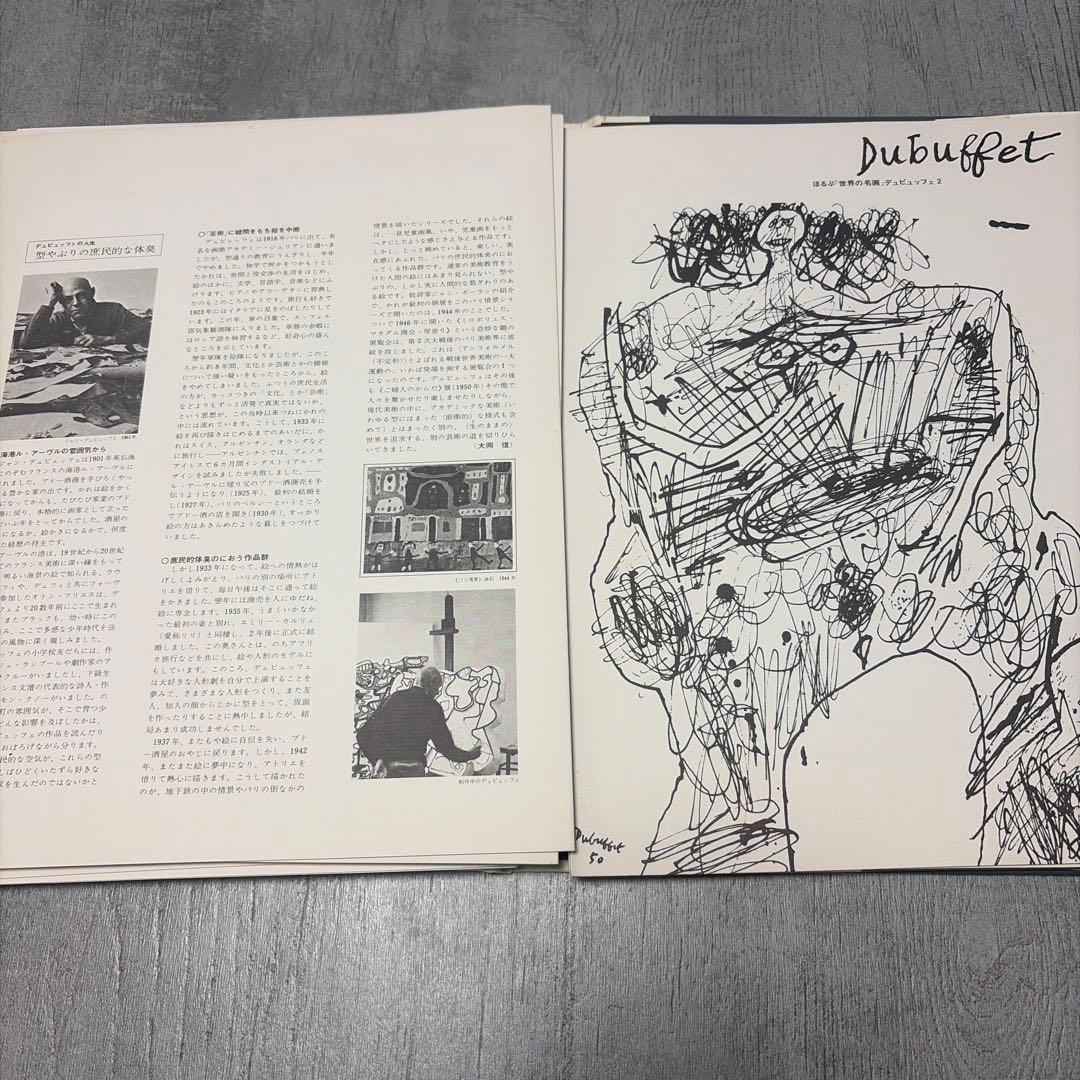 デュビュッフェの人生
型やぶりの庶民的な体臭
ジャン・デュビュッフェ 1961年
海港ル・アーヴルの雰囲気から
ジャン・デュビュッフェは1901年英仏海
このぞむフランスの海港ル・アーヴルに
れました。ブドー酒商を手びろくやっ
る豊かな家の出です。かれは絵をかく
になってからも、たびたび家業のブド
商に戻り、本格的に画家として立った
どいぶ年をとってからでした。酒屋の
になるか、絵かきになるかで、何度
た経歴の持主です。
アーヴルの港は、19世紀から20世紀
てのフランス美術に深い縁をもって
明るい海景の絵で知られる、ラウ
フィや、デュフィと共にフォーヴ
参加したオトン・フリエスは、デ
フェより20数年前にここで生まれ
またブラックも、幼い頃にここ
み、ここで多感な少年時代を送
の風物に深く親しみました。
ッフェの小学校友だちには、作
ジュ・ランブールや劇作家のア
クルーがいましたし、下級生
ンス文壇の代表的な詩人・作
モン・クノーがいました。の
町の雰囲気が、そこで育つ少
どんな影響を及ぼしたかは、
ュッフェの作品を読んだり
おぼろげながら分ります。
民的な空気が、これらの型
しばひどくいたずら好きな
家を生んだのではないかと
○「芸術」に疑問をもち絵を中断
デュビュッフェは1918年パリに出て、有
名な画塾アカデミー・ジュリアンに通いま
したが、型通りの教育にうんざりし、半年
でやめました。独学で何かをつかもうとし
たかれは、世間と没交渉の生活をはじめ、
絵のほかに、文学、言語学、音楽などにふ
けります。ピアノやアコーデオンに習熟し
たのもこのころのようです。旅行も好きで
1923年にはイタリアに足をのばしたりして
います。この年、軍の召集で、エッフェル
塔気象観測隊に入りました。軍務の余暇に
はロシア語を独習するなど、好奇心の盛ん
なところを示しています。
翌年軍隊を除隊になりましたが、このこ
ろから約8年間、文化とか芸術とかの価値
について強い疑いをもったところから、絵
をやめてしまいました。ふつうの庶民生活
の方が、カッコつきの「文化」とか「芸術」
などよりもずっと活発で真実ではないか、
という思想が、この当時以来つねにかれの
中には流れています。こうして、1933年に
絵を再び描きはじめるまでのあいだに、か
れはスイス、アルゼンチン、オランダなど
に旅行し——アルゼンチンでは、ブエノス
アイレスで6カ月間インダストリアル・デ
ザインを試みましたが失敗しました。——
ル・アーヴルに帰り父のアドー酒商売を手
伝うようになり(1925年)、最初の結婚を
し(1927年)、パリのベルシーというところ
でブドー酒の店を開き(1930年)、すっかり
絵の方はあきらめたような暮しをつづけて
いました。
○庶民的体臭のにおう作品群
しかし1933年になって、絵への情熱がは
げしくよみがえり、パリの別の場所にアト
リエを借りて、毎日午後はそこに通って絵
をかきました。翌年には商売を人にゆだね、
絵に専念します。1935年、うまくいかなか
った最初の妻と別れ、エミリー・カルリュ
(愛称リリ)と同棲し、2年後に正式に結
婚しました。この奥さんとは、のちアフリ
カ旅行などを共にし、絵や人形のモデルに
もしています。このころ、デュビュッフェ
は大好きな人形劇を自分で上演することを
夢みて、さまざまな人形をつくり、また友
人、知人の顔からじかに型をとって、仮面
を作ったりすることに熱中しましたが、結
局あまり成功しませんでした。
1937年、またもや絵に自信を失い、ブド
ー酒屋のおやじに戻ります。しかし、1942
年、またまた絵に夢中になり、アトリエを
借りて熱心に描きます。こうして描かれた
のが、地下鉄の中の情景やパリの街なかの
情景を描いたシリーズでした。それらの絵
は、一見児童画風、いや、児童画をもっと
ヘタにしたような感じさえ与える作品です。
しかし、じっと眺めていると、楽しい、実
在感にあふれた、パリの庶民的体臭のにお
ってくる作品群です。通常の美術教育をう
けた人間の絵にはあまり見られない、型や
ぶりの、しかし実に人間的な肌ざわりのあ
る絵です。批評家ジャン・ポーランの紹介
で、かれが最初の個展をこのパリ情景シリ
ーズで開いたのは、1944年のことでした。
ついで1946年に開いた《ミロボリュスト・
マカダム商会・厚塗り》という奇妙な題の
展覧会は、第2次大戦後のパリ美術界に波
紋を投じました。これは〈アンフォルメル
(不定形)〉とよばれる戦後世界美術の一大
運動の、いわば発端を画する展覧会の1つ
になったのです。デュビュッフェはその後
も《ご婦人のからだ》展(1950年)その他で
人々を驚かせたり楽しませたりしながら、
現代美術の中に、アカデミックな美術(い
わゆる型にはまった〈前衛的〉な様式も含
めて)とはまったく別の、〈生のままの〉
世界を追求する、別の芸術の道を切りひら
いてきました。 (大岡 信)
《パリ情景》油彩 1944年
制作中のデュビュッフェ
Dubuffet
ほるぷ「世界の名画」デュビュッフェ2
Dubuffet
50